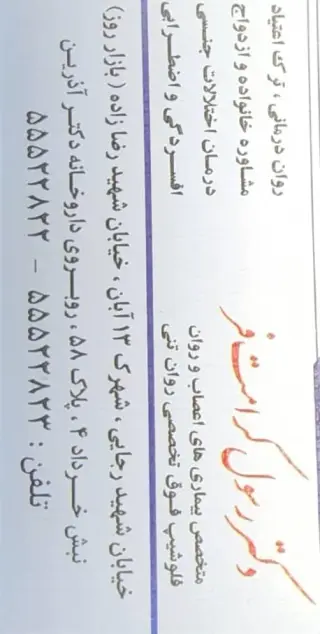 دکتر رسول کرامت فر
متخصص بیماری های اعصاب و روان
فلوشیپ فوق تخصصی روان تنی
روان درمانی ، ترک اعتیاد
مشاوره خانواده و ازدواج
درمان اختلالات جنسی
افسردگی و اضطرابی
خیابان شهید رجایی ، شهرک ۱۳ آبان ، خیابان شهید رضا زاده ( بازار روز )
نبش خرداد ۴ ، پلاک ۵۸ ، روبروی داروخانه دکتر آذرین
تلفن : ۵۵۵۲۲۸۲۳ – ۵۵۵۲۲۸۲۲